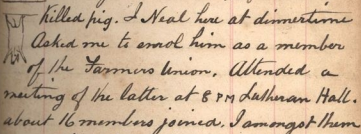 Killed pig. J Neal here at dinnertime
Asked me to enrol him as a member
of the Farmers Union. Attended a
meeting of the latter at 8 PM Lutheran Hall.
about 16 members joined. I amongst them